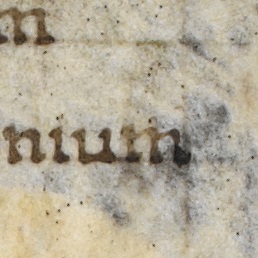 m
nium